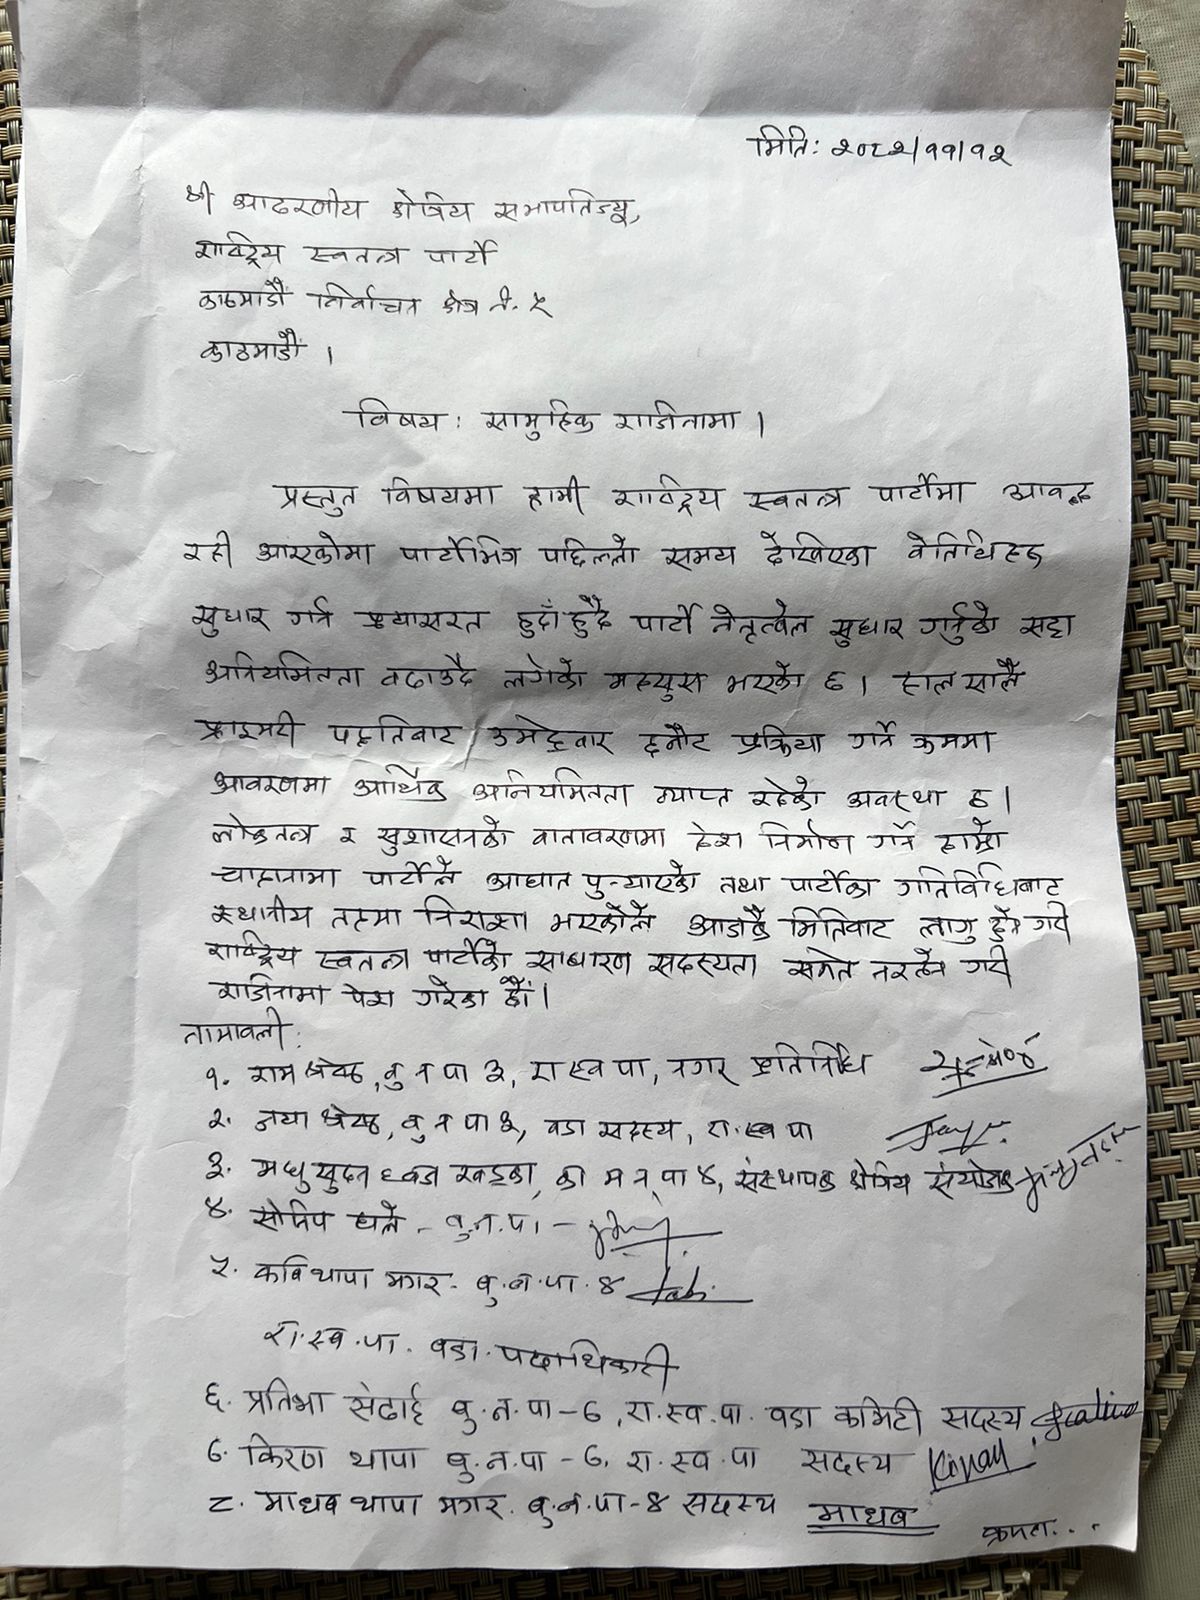 मिति: २०८२/११/१२
श्री आदरणीय क्षेत्रिय सभापतिज्यू,
राष्ट्रिय स्वतन्त्र पार्टी
काठमाडौं निर्वाचन क्षेत्र नं. ५
काठमाडौं ।
विषय : सामुहिक राजिनामा ।
प्रस्तुत विषयमा हामी राष्ट्रिय स्वतन्त्र पार्टीमा आवद्ध
रही आएकोमा पार्टीभित्र पछिल्लो समय देखिएका वेतिथिहरु
सुधार गर्न प्रयासरत हुदाँहुदै पार्टी नेतृत्वले सुधार गर्नुको सट्टा
अनियमितता बढाउदै लगेको महसुस भएको छ । हाल सालै
प्राइमरी पद्दतिबाट उमेद्वार छनौट प्रक्रिया गर्ने क्रममा
आवरणमा आर्थिक अनियमितता व्याप्त रहेको अवस्था छ ।
लोकतन्त्र र सुशासनको वातावरणमा देश निर्माण गर्ने हाम्रो
चाहानामा पार्टीले आघात पुर्‍याएको तथा पार्टीका गतिविधिबाट
स्थानीय तहमा निराशा भएकोले आजकै मितिबाट लागु हुने गरी
राष्ट्रिय स्वतन्त्र पार्टीको साधारण सदस्यता समेत नरहने गरी
राजिनामा पेश गरेका छौं ।
नामावली:
१. राम श्रेष्ठ, बु न पा ३, रा स्व पा, नगर प्रतिनिधि
२. जया श्रेष्ठ, बु न पा ३, वडा सदस्य, रा. स्व पा
३. मधुसुदन ध्वज खड्का, का म न पा ४, संस्थापक क्षेत्रिय संयोजक
४. सोजिप घले - बु.न.पा -
५. कवि थापा मगर - बु.न.पा.४
रा.स्व.पा. वडा पदाधिकारी
६. प्रतिभा सेढाई बु.न.पा-७, रा.स्व.पा. वडा कमिटी सदस्य
७. किरण थापा बु.न.पा-७, रा.स्व.पा सदस्य
८. माधव थापा मगर. बु.न.पा-४ सदस्य माधव
क्रमश...